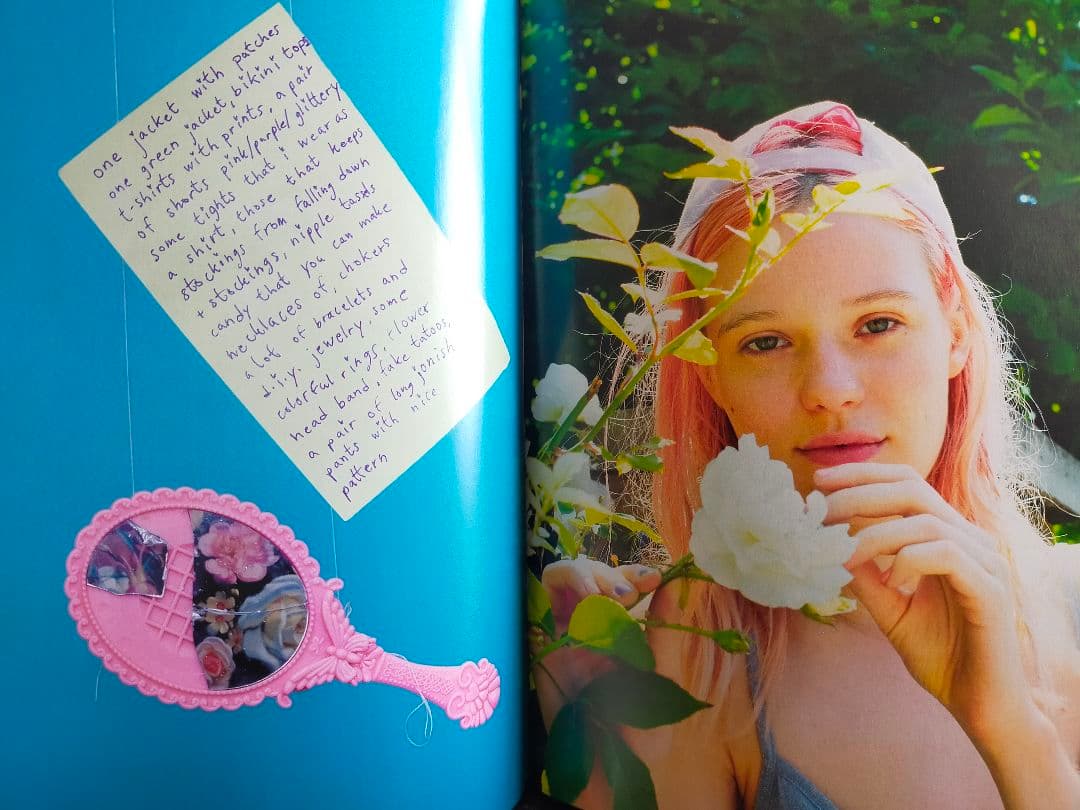 one jacket with patches
one green jacket, bikini tops
t-shirts with prints, a pair
of shorts pink/purple/glittery
some tights that i wear as
a shirt, those that keeps
stockings from falling down
+ stockings, nipple tasds
candy that you can make
necklaces of, chokers
a lot of bracelets and
d.i.y. jewelry, some
colorful rings, flower
head band, fake tatoos,
a pair of long jonish
pants with nice
pattern